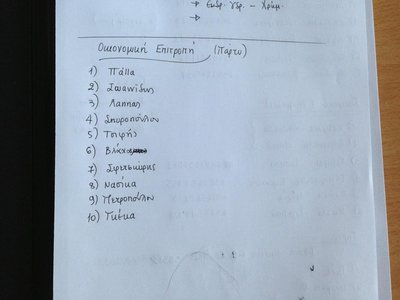 → Εκδρ. Γυρ. - Χρημ.
→
Οικονομική Επιτροπή (Πάρτυ)
1) Πάππα
2) Ιωαννίδης
3) Λάππας
4) Σπυροπούλου
5) Τσιρής
6) Βλάχο
7) Σφετσιώρης
8) Νασίκα
9) Πετροπούλου
10) Γκέκα